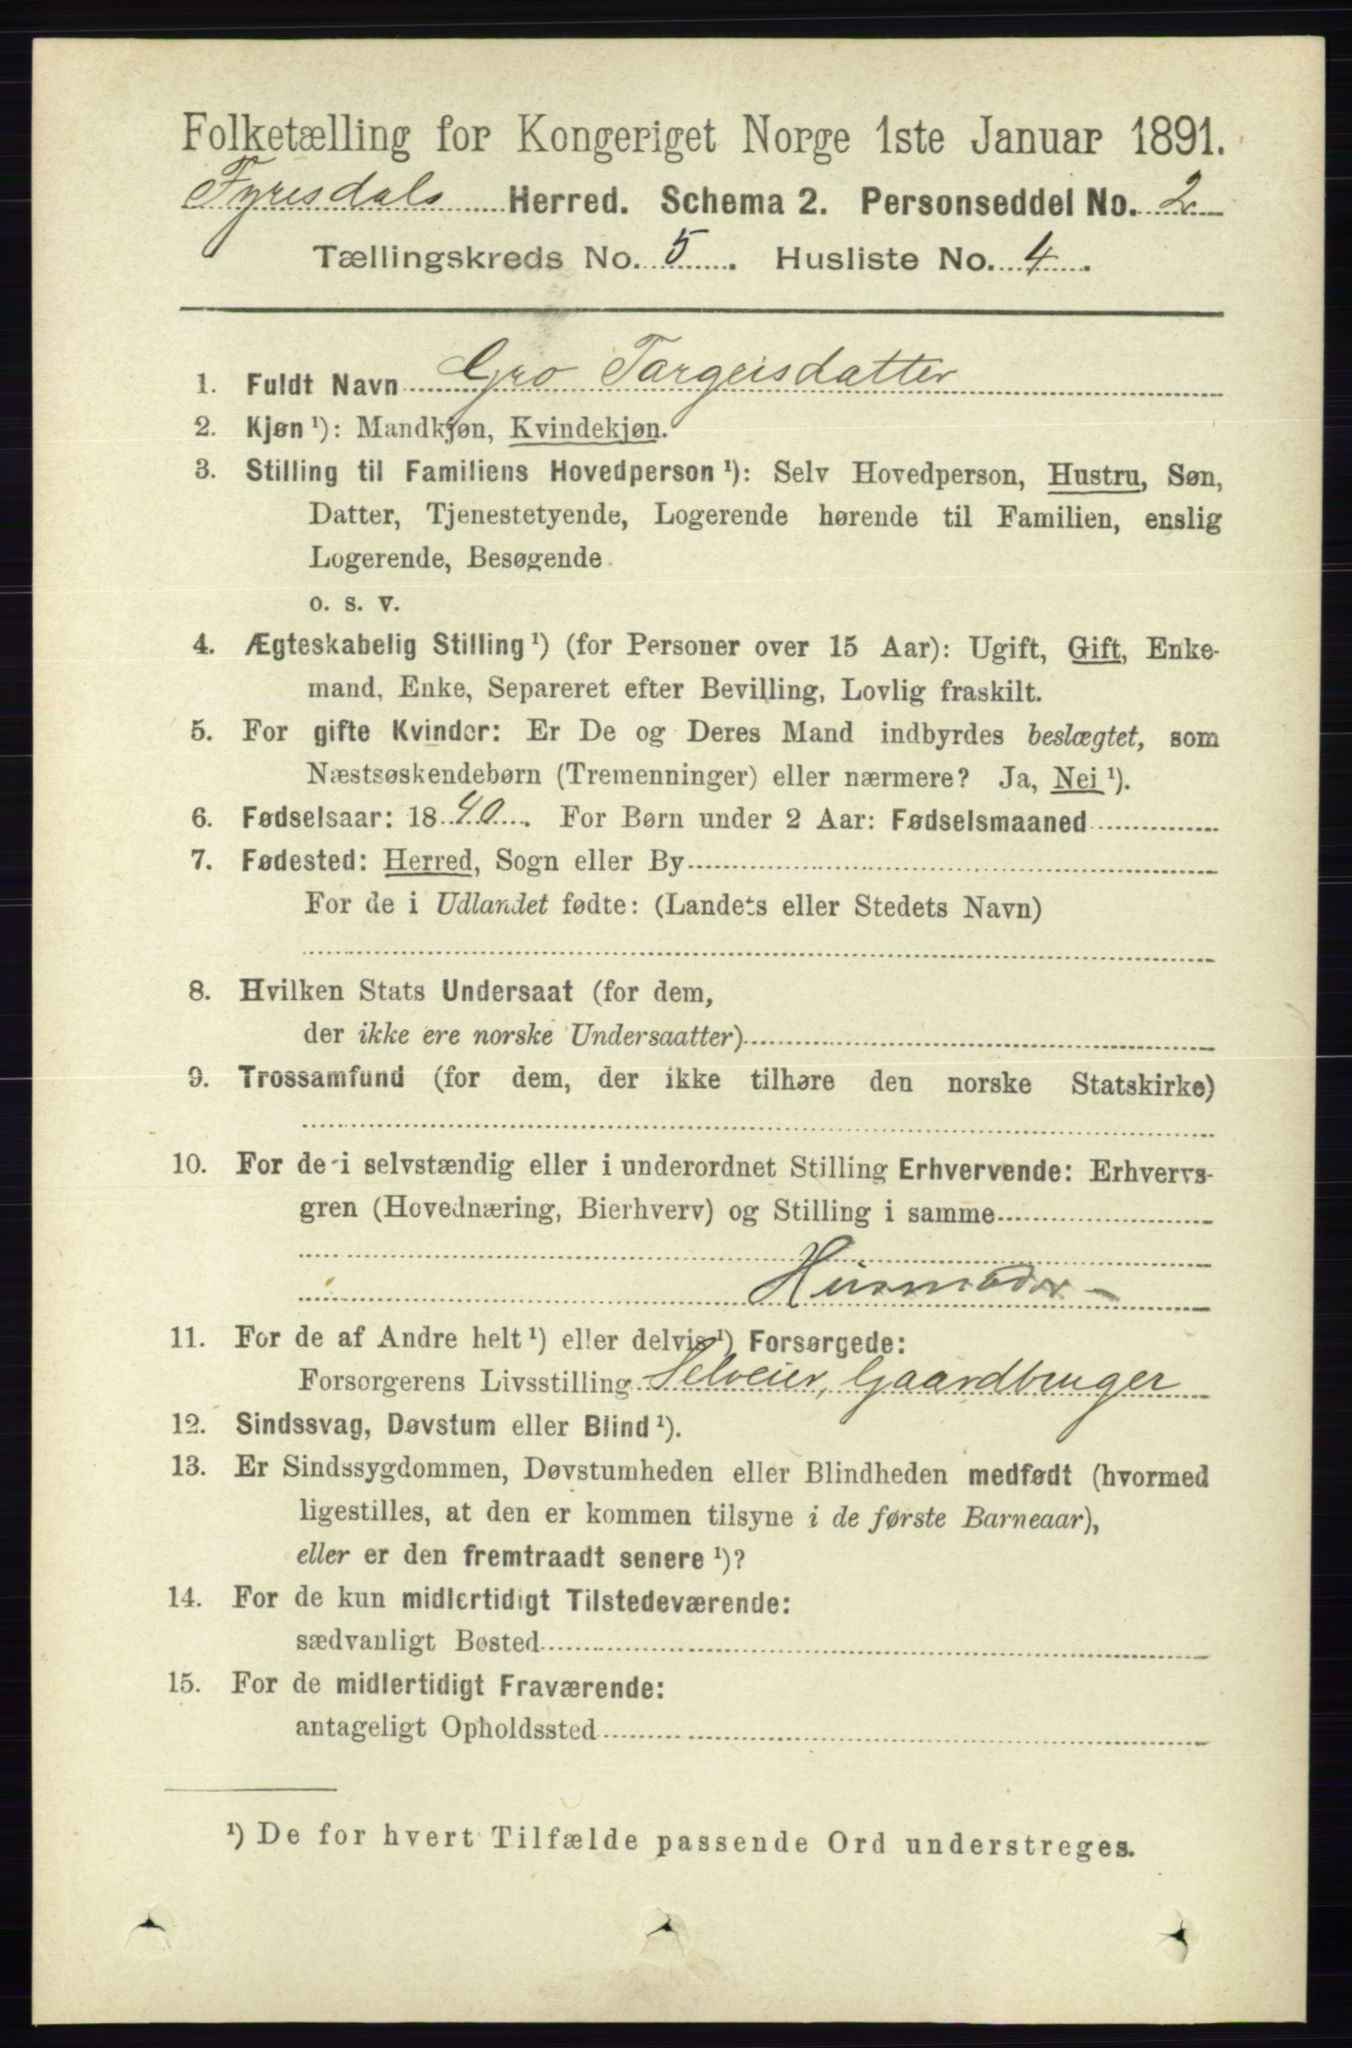 Folketælling for Kongeriget Norge 1ste Januar 1891.
Fyresdals Herred. Schema 2. Personseddel No. 2
Tællingskreds No. 5. Husliste No. 4.
1. Fuldt Navn Gro Targeisdatter
2. Kjøn ¹): Mandkjøn, Kvindekjøn.
3. Stilling til Familiens Hovedperson ¹): Selv Hovedperson, Hustru, Søn,
Datter, Tjenestetyende, Logerende hørende til Familien, enslig
Logerende, Besøgende
o. s. v.
4. Ægteskabelig Stilling ¹) (for Personer over 15 Aar): Ugift, Gift, Enke-
mand, Enke, Separeret efter Bevilling, Lovlig fraskilt.
5. For gifte Kvinder: Er De og Deres Mand indbyrdes beslægtet, som
Næstsøskendebørn (Tremenninger) eller nærmere? Ja, Nei ¹).
6. Fødselsaar: 1840. For Børn under 2 Aar: Fødselsmaaned
7. Fødested: Herred, Sogn eller By
For de i Udlandet fødte: (Landets eller Stedets Navn)
8. Hvilken Stats Undersaat (for dem,
der ikke ere norske Undersaatter)
9. Trossamfund (for dem, der ikke tilhøre den norske Statskirke)
10. For de i selvstændig eller i underordnet Stilling Erhvervende: Erhvervs-
gren (Hovednæring, Bierhverv) og Stilling i samme
Husmoder -
11. For de af Andre helt ¹) eller delvis ¹) Forsørgede:
Forsørgerens Livsstilling Selveier, Gaardbruger
12. Sindssvag, Døvstum eller Blind ¹).
13. Er Sindssygdommen, Døvstumheden eller Blindheden medfødt (hvormed
ligestilles, at den er kommen tilsyne i de første Barneaar),
eller er den fremtraadt senere ¹)?
14. For de kun midlertidigt Tilstedeværende:
sædvanligt Bosted
15. For de midlertidigt Fraværende:
antageligt Opholdssted
¹) De for hvert Tilfælde passende Ord understreges.